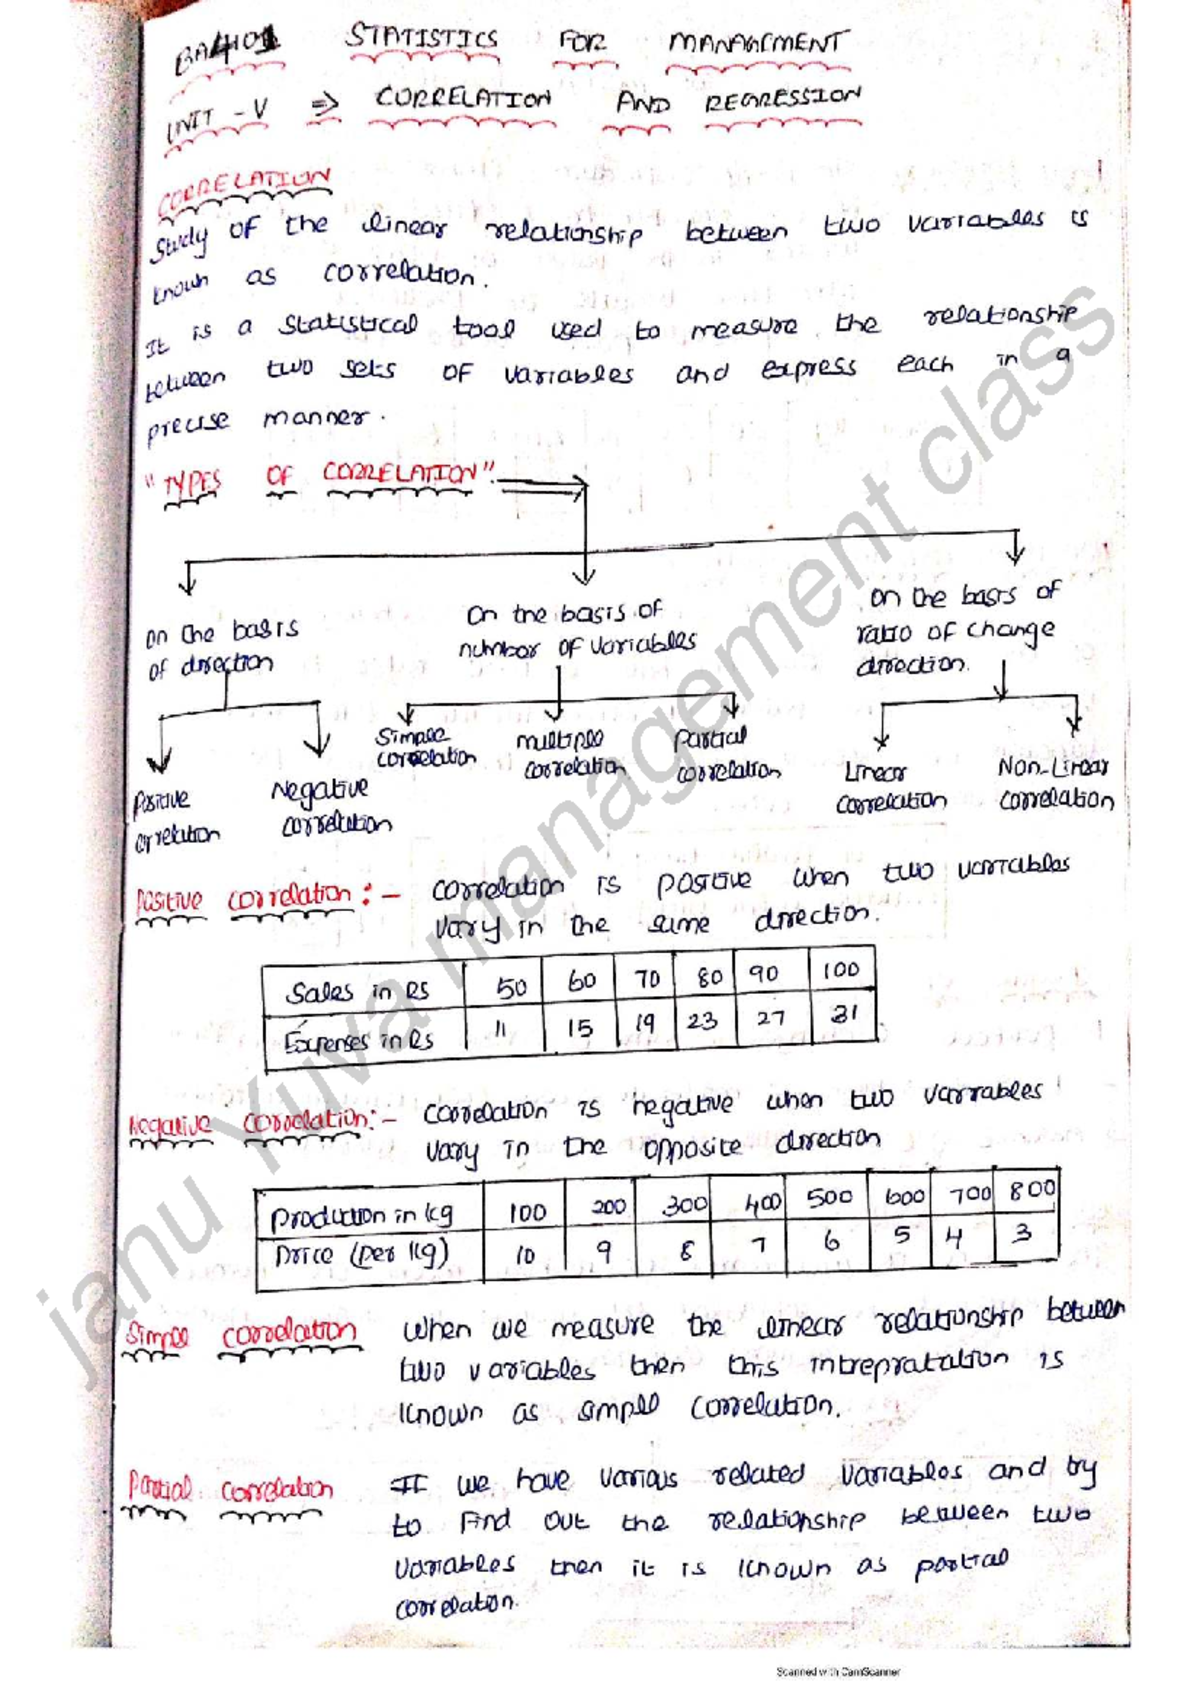 BA4101 STATISTICS FOR MANAGEMENT
UNIT - V ⇒ CORRELATION AND REGRESSION
CORRELATION
Study of the linear relationship between two variables is
known as correlation.
It is a statistical tool used to measure the relationship
between two sets of variables and express each in a
precise manner.
"TYPES OF CORRELATION"
on the basis
of direction
On the basis of
number of variables
on the basis of
ratio of change
direction.
Positive
correlation
Negative
correlation
Simple
correlation
multiple
correlation
Partial
correlation
Linear
correlation
Non-Linear
correlation
Positive correlation :- correlation is positive when two variables
vary in the same direction.
Sales in RS 50 60 70 80 90 100
Expenses in Rs 11 15 19 23 27 31
Negative correlation:- correlation is negative when two variables
vary in the opposite direction
Production in kg 100 200 300 400 500 600 700 800
Price (per kg) 10 9 8 7 6 5 4 3
Simple correlation When we measure the linear relationship between
two variables then this intrepratation is
known as simple correlation.
Partial correlation If we have various related variables and by
to find out the relationship between two
variables then it is known as partial
correlation.
janu Yuva management class
Scanned with CamScanner